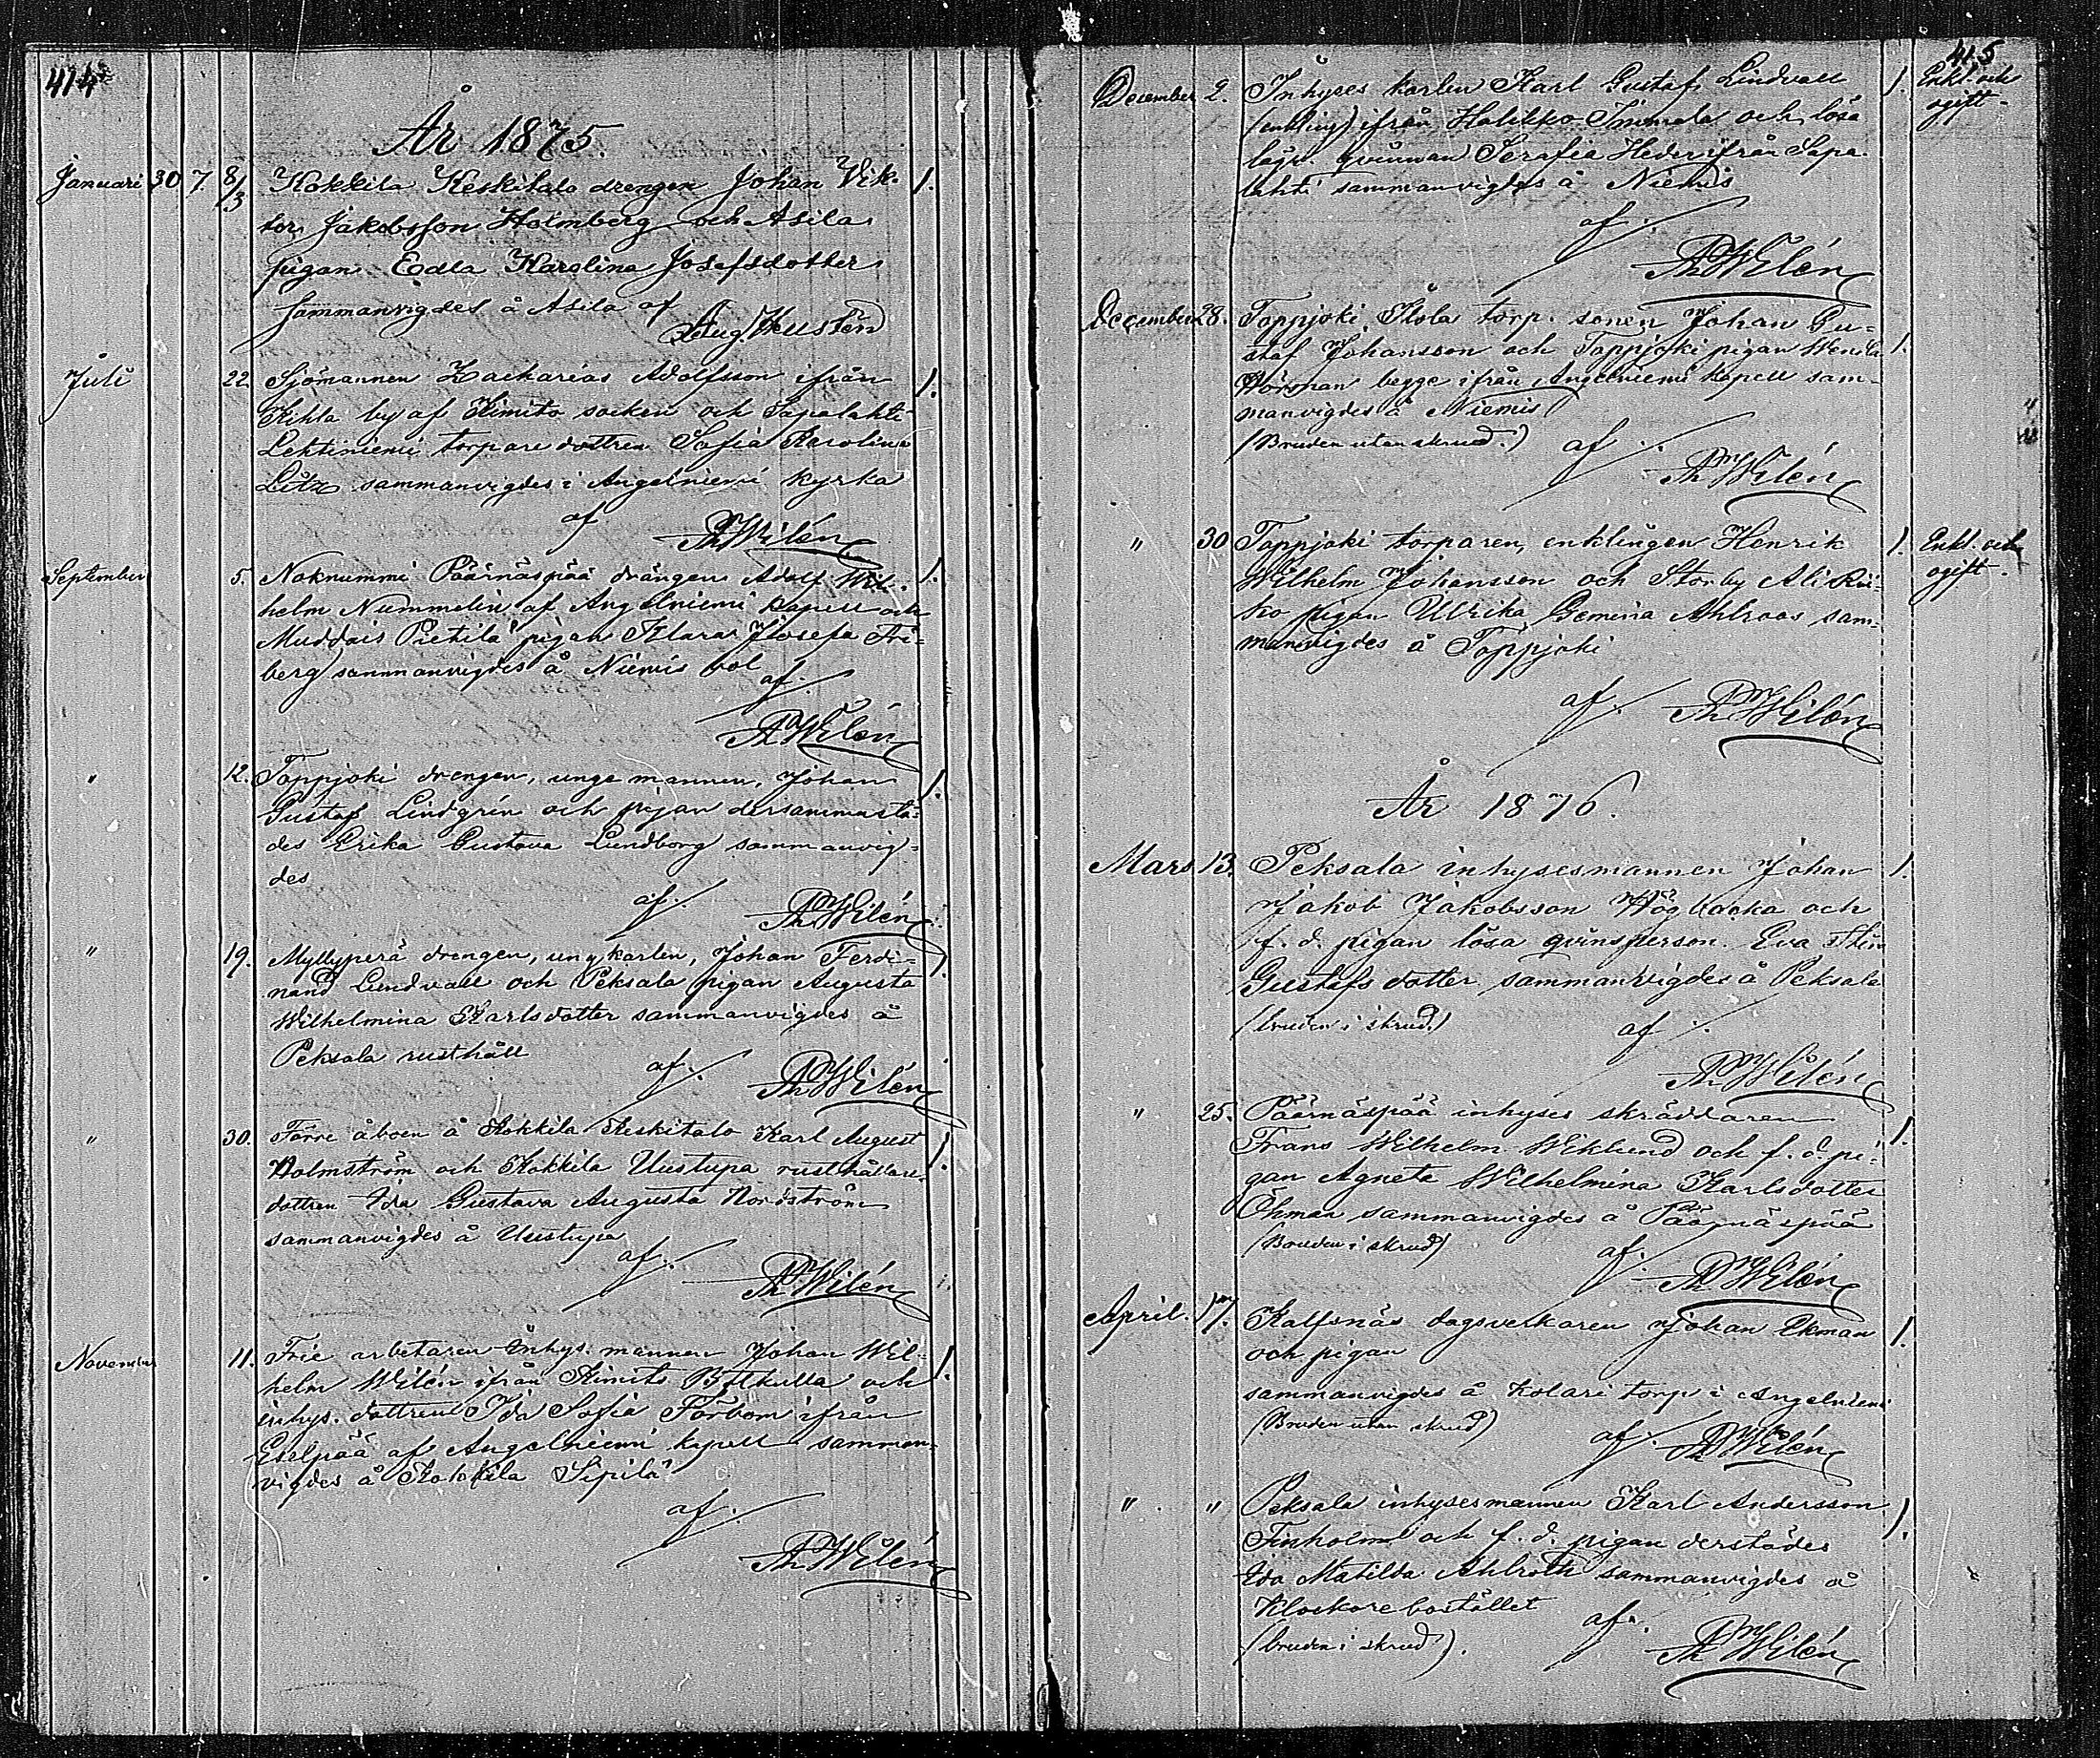 414
År 1875.
Januari 30 7. 8/3 Kokkila Keskitalo drengen Johan Vik- 1.
tor Jakobsson Holmberg och Asila
pigan Edla Karolina Josefsdotter
sammanvigdes å Asila af
Aug. Heusten
Juli 22. Sjömannen Zacharias Adolfsson ifrån 1.
by af Kimito socken och Sapalahti
Lehtiniemi torpare dottren Sofia Karolina
sammanvigdes i Angelniemi kyrka
af
Th Wilén
September 5. Noknummi Päärnäspää drängen Adolf Wil- 1.
helm Nummelin af Angelniemi kapell och
Muddais Pietilä pigan Klara Josefa Fri-
berg sammanvigdes å Niemis bol
af.
Th Wilén
" 12. Toppjoki drengen, unge mannen, Johan 1.
Gustaf Lindgrén och pigan dersammastä-
des Erika Gustava Lundborg sammanvig-
des
af.
Th Wilén
" 19. Myllyperä drengen, ungkarlen, Johan Ferdi- 1.
nand Lundvall och Peksala pigan Augusta
Wilhelmina Karlsdotter sammanvigdes å
Peksala rusthåll
af.
Th Wilén
" 30. Förre åboen å Kokkila Keskitalo Karl August 1.
Holmström och Kokkila Uustupa rusthållare 1.
dottren Ida Gustava Augusta Nordström
sammanvigdes å Uustupa
af.
Th Wilén
November 11. Frie arbetaren Inhys. mannen Johan Wil- 1.
helm Wilén ifrån Kimito Böllkulla och
inhys. dottren Ida Sofia Forbom ifrån
af Angelniemi kapell samman-
vigdes å Kokkila Sipilä
af.
Th Wilén
415
December 2. Inhyses karlen Karl Gustaf Lindvall 1. Enkl. och
(enkling) ifrån Halikko Immala och lösa ogift.
qvinnan Serafia Heder ifrån Sapa-
lahti sammanvigdes å Niemis
af.
Th Wilén
December 28. Toppjoki torp. sonen Johan Gu-
staf Johansson och Toppjoki pigan Wendla 1.
begge ifrån Angelniemi kapell sam-
manvigdes å Niemis
(Bruden utan skrud.)
af.
Th Wilén
" 30 Toppjoki torparen, enklingen Henrik 1. Enkl. och
Wilhelm Johansson och Storby Ali Rii- ogift.
ko pigan Ulrika Gemina Ahlroos sam-
manvigdes å Toppjoki
af.
Th Wilén
År 1876.
Mars 13. Peksala inhysesmannen Johan 1.
Jakob Jakobsson Högbacka och
f. d. pigan lösa qvinsperson. Eva Stina
Gustafs dotter sammanvigdes å Peksala
(bruden i skrud.)
af.
Th Wilén
" 25. Päärnäspää inhyses skräddaren
Frans Wilhelm Wiklund och f. d. pi- 1.
gan Agneta Wilhelmina Karlsdotter
Öhman sammanvigdes å Päärnäspää
(Bruden i skrud)
af.
Th Wilén
April. 17. Kalfsnäs dagsverkaren Johan Ekman 1.
och pigan
sammanvigdes å Kolari torp i Angelniemi
(Bruden utan skrud)
af.
Th Wilén
" " Peksala inhysesmannen Karl Andersson 1.
Finholm och f. d. pigan derstädes
Ida Matilda Ahlroth sammanvigdes å
Klockarebostället
af.
(bruden i skrud).
Th Wilén